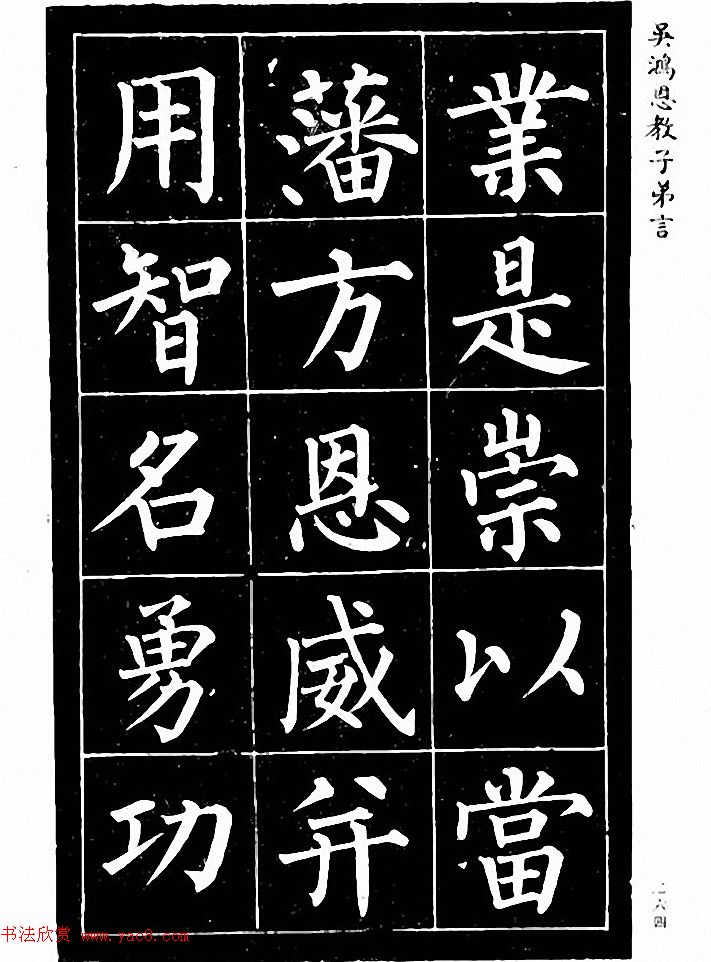 吳鴻恩教子弟言
業是崇以當
藩方恩威并
用智名勇功
二六四
书法欣赏 www.yac8.com